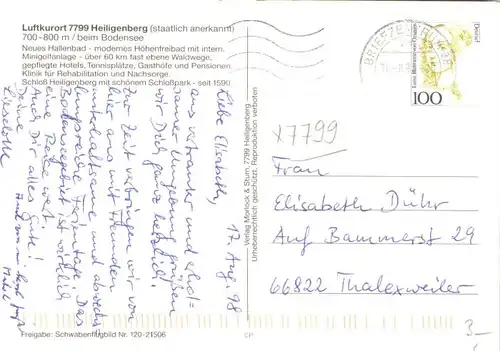 Luftkurort 7799 Heiligenberg (staatlich anerkannt)
700-800 m / beim Bodensee
Neues Hallenbad - modernes Höhenfreibad mit intern.
Minigolfanlage - über 60 km fast ebene Waldwege,
gepflegte Hotels, Tennisplätze, Gasthöfe und Pensionen.
Klinik für Rehabilitation und Nachsorge.
Schloß Heiligenberg mit schönem Schloßpark - seit 1590
17. Aug. 98
Liebe Elisabeth,
aus vertrauter und erhol=
samer Umgebung grüßen
wir Dich ganz herzlich!
Zur Zeit verbringen wir von
hier aus mit Freunden
unterhaltsame und abwechs=
lungsreiche Ferientage. Das
Bodenseegebiet ist wirklich
eine Reise wert.
Auch Dir alles Gute!
Deine
Lieselotte
Verlag Morlock & Sturn, 7799 Heiligenberg
Urheberrechtlich geschützt. Reproduktion verboten
BRIEFZENTRUM
100
x7799
Frau
Elisabeth Dühr
Auf Bammerst 29
66822 Thalexweiler
3-
Freigabe: Schwabenflugbild Nr. 120-21506
CP